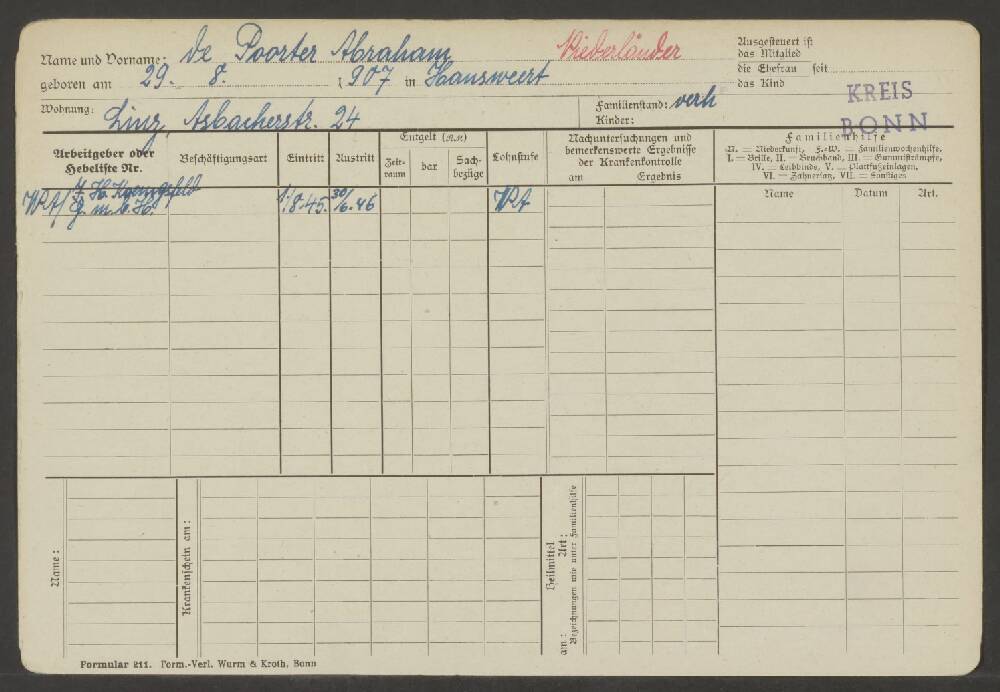 Name und Vorname: de Poorter Abraham Niederländer
geboren am 29. 8. 1907 in Hansweert
Wohnung: Linz, Asbacherstr. 24
Familienstand: verh
Kinder:
Ausgesteuert ist
das Mitglied
die Ehefrau seit
das Kind
KREIS
BONN
Arbeitgeber oder
Hebeliste Nr.
Beschäftigungsart
Eintritt
Austritt
Entgelt (RM)
Zeit-
raum
bar
Sach-
bezüge
Lohnstufe
Nachuntersuchungen und
bemerkenswerte Ergebnisse
der Krankenkontrolle
am Ergebnis
Familienhilfe
N. = Niederkunft, F.-W. = Familienwochenhilfe,
I. = Brille, II. = Bruchband, III. = Gummistrümpfe,
IV. = Leibbinde, V. = Plattfußeinlagen,
VI. = Zahnersatz, VII. = Sonstiges
Name Datum Art.
G. m. b. H. 1.8.45. 30/6.46
Name:
Krankenschein am:
Heilmittel
am: Art:
Bezeichnungen wie unter Familienhilfe
Formular 211. Form.-Verl. Wurm & Kroth, Bonn